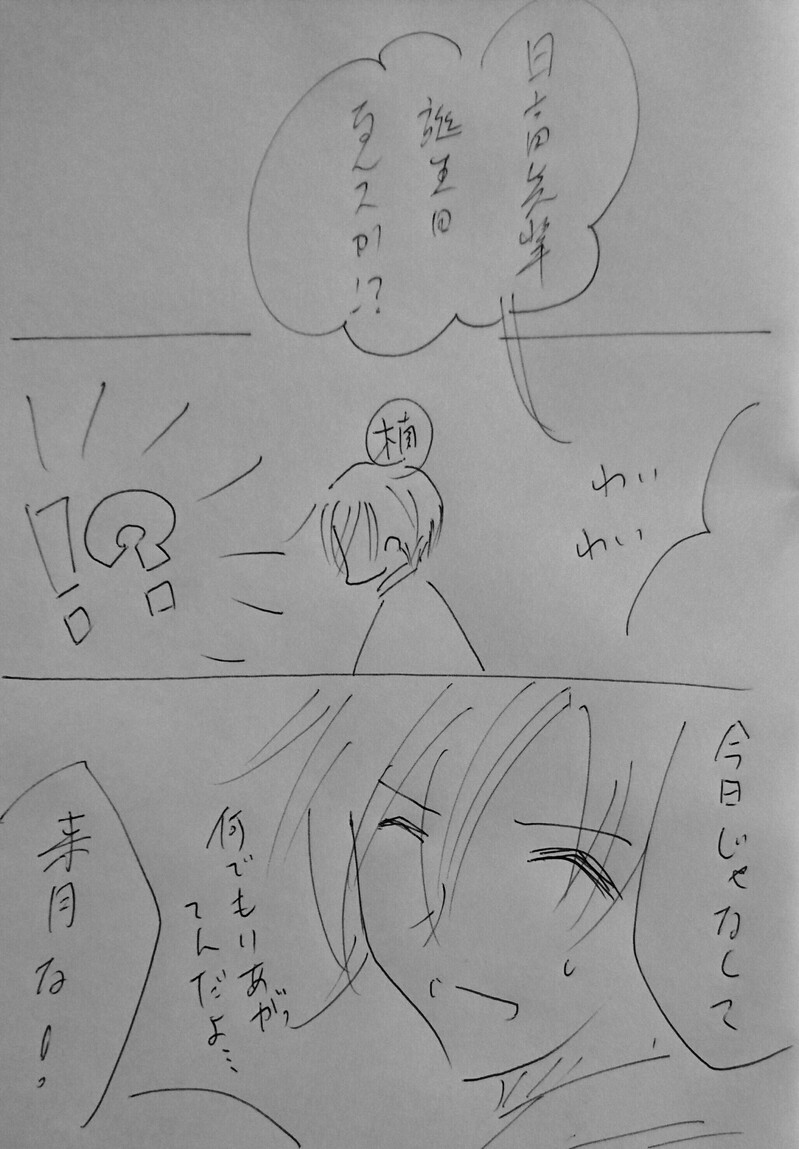 日高先輩
誕生日
なんスか!?
わい
わい
楠
!?
今日じゃなくて
何でもりあがっ
てんだよ…
来月な!